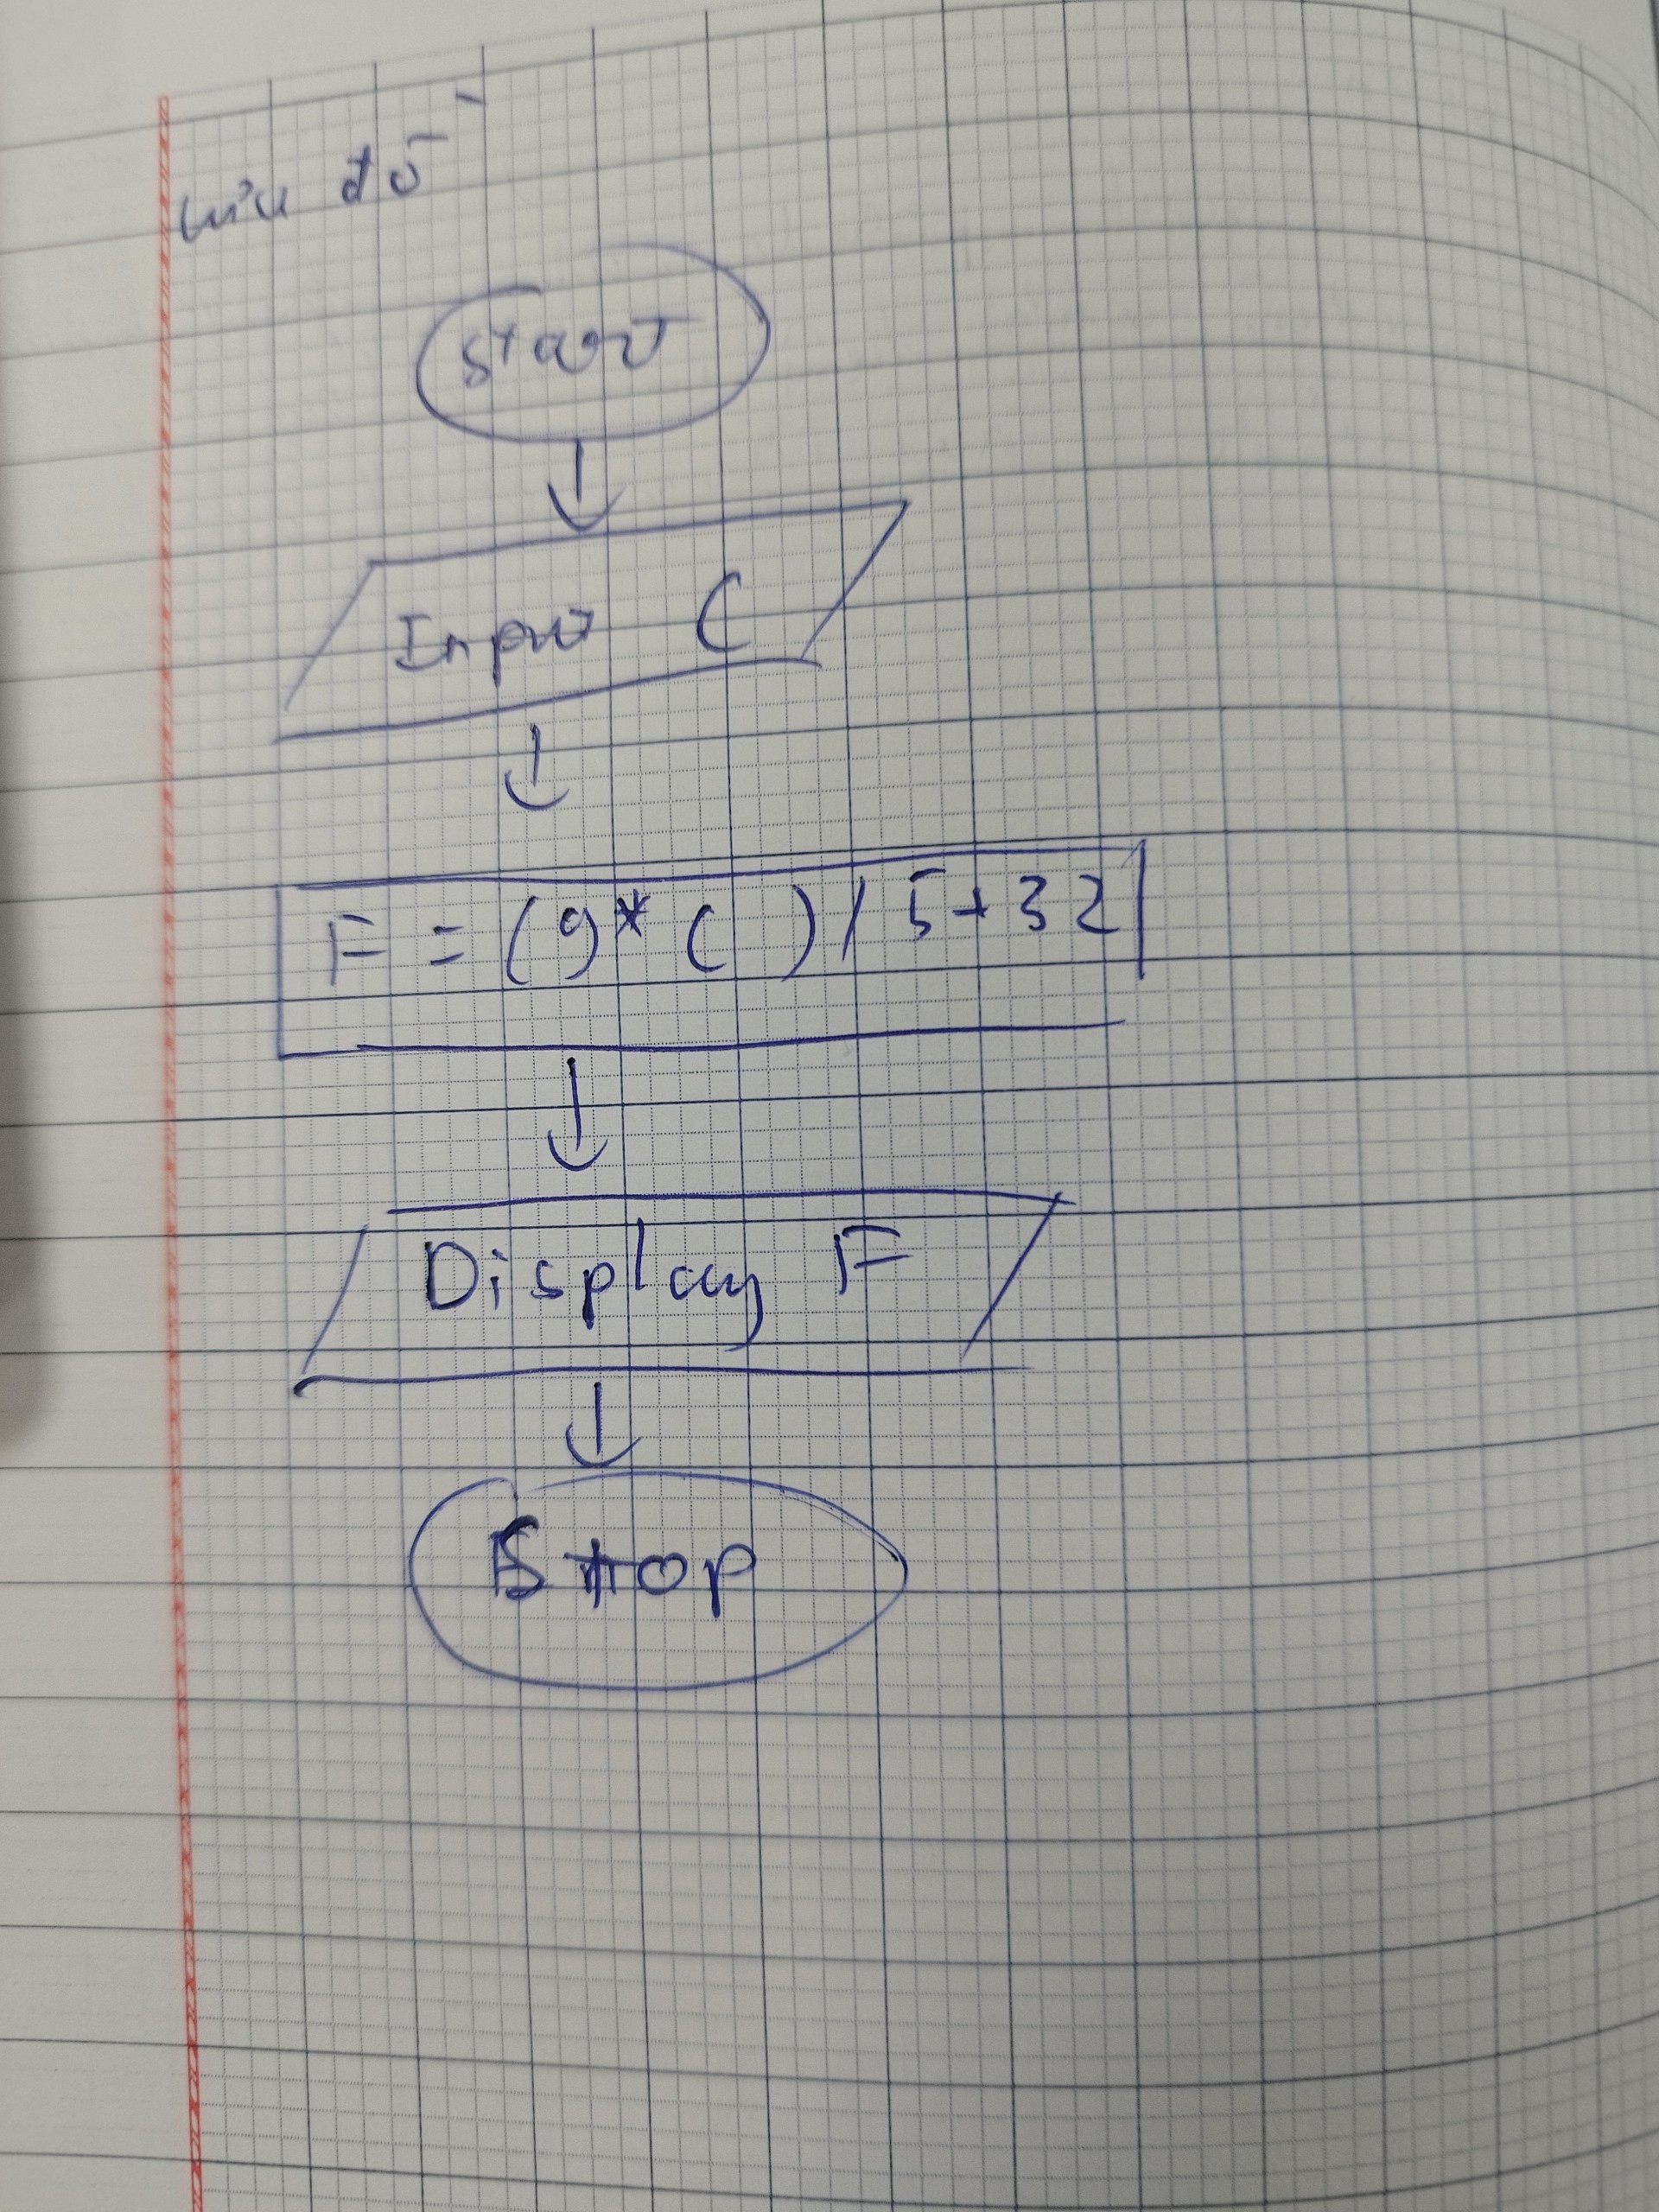 lưu đồ
Start
Input C
F = (9 * C ) / 5 + 32
Display F
Stop